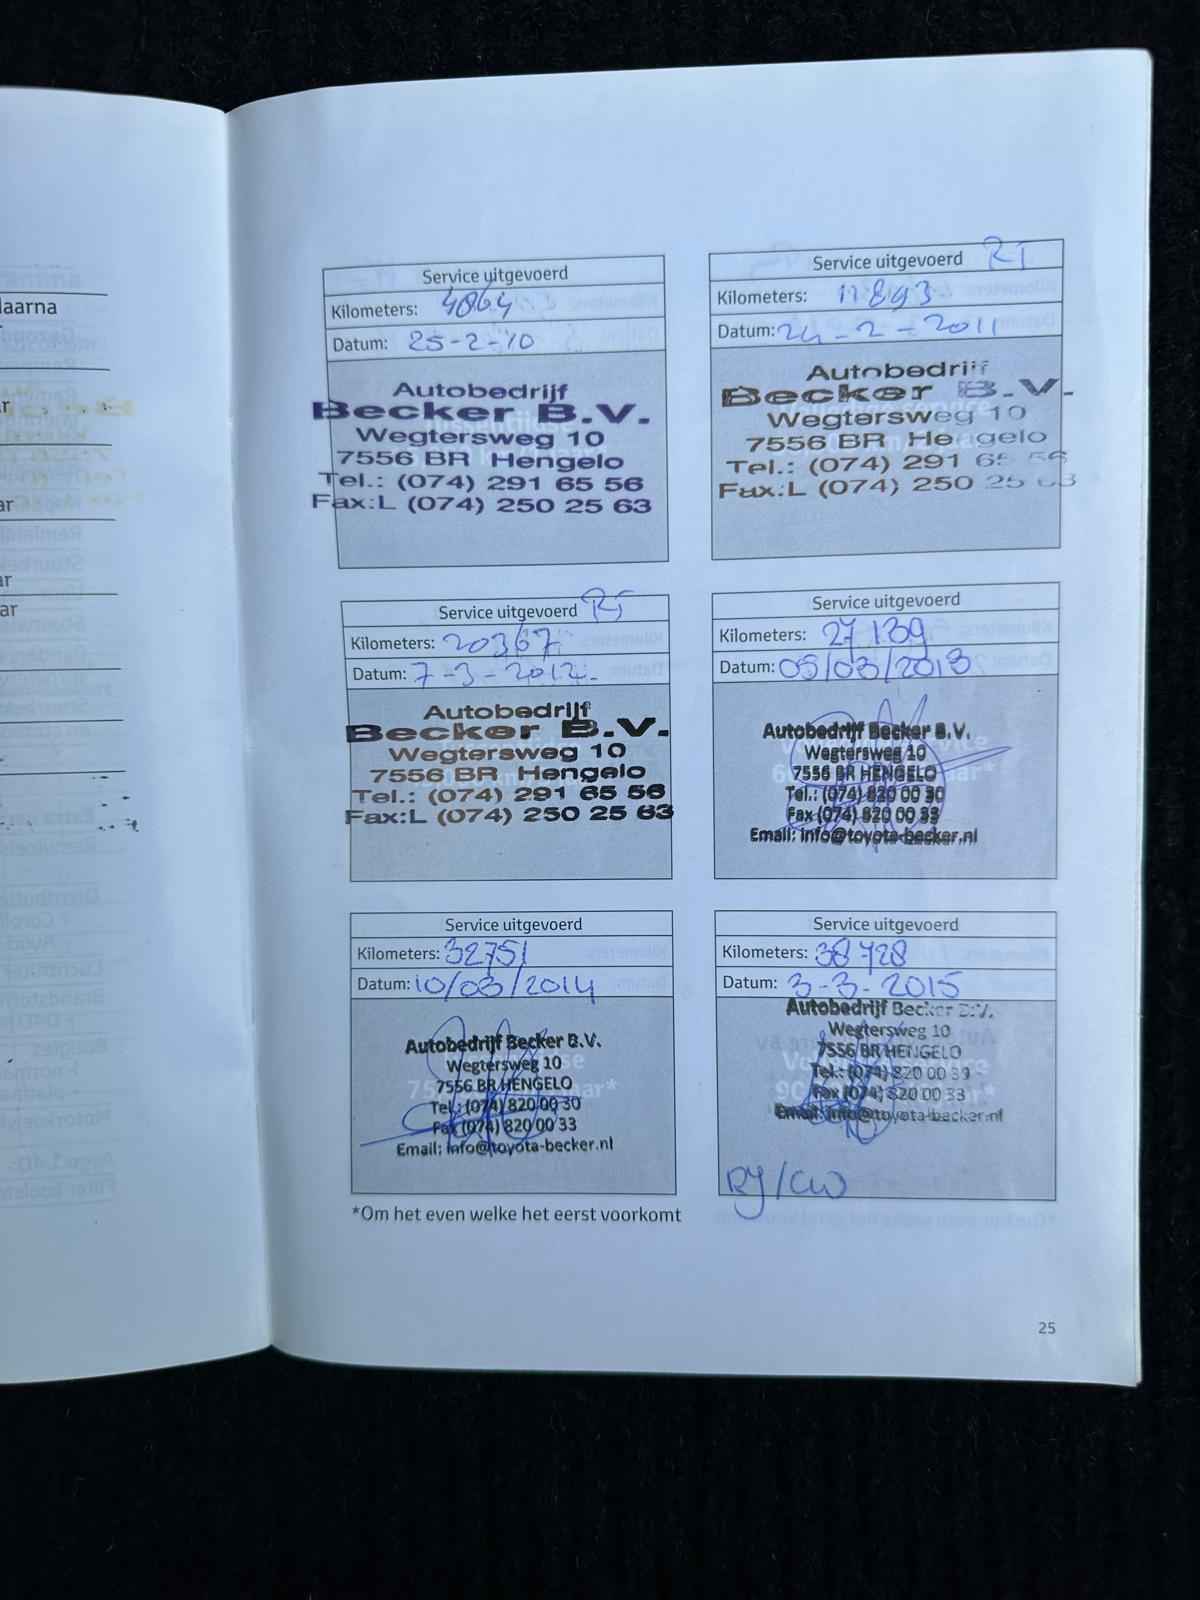 laarna
Service uitgevoerd
Kilometers: 4864
Datum: 25-2-10
Autobedrijf
Becker B.V.
Wegtersweg 10
7556 BR Hengelo
Tel.: (074) 291 65 56
Fax:L (074) 250 25 63
Service uitgevoerd RT
Kilometers: 11893
Datum: 24-2-2011
Autobedrijf
Becker B.V.
Wegtersweg 10
7556 BR Hengelo
Tel.: (074) 291 65 56
Fax:L (074) 250 25 63
Service uitgevoerd RT
Kilometers: 20367
Datum: 7-3-2012.
Autobedrijf
Becker B.V.
Wegtersweg 10
7556 BR Hengelo
Tel.: (074) 291 65 56
Fax:L (074) 250 25 63
Service uitgevoerd
Kilometers: 27139
Datum: 05/03/2013
Autobedrijf Becker B.V.
Wegtersweg 10
7556 BR HENGELO
Tel.: (074) 820 00 30
Fax (074) 820 00 33
Email: info@toyota-becker.nl
Service uitgevoerd
Kilometers: 32751
Datum: 10/03/2014
Autobedrijf Becker B.V.
Wegtersweg 10
7556 BR HENGELO
Tel.: (074) 820 00 30
Fax (074) 820 00 33
Email: info@toyota-becker.nl
Service uitgevoerd
Kilometers: 38728
Datum: 3-3-2015
Autobedrijf Becker B.V.
Wegtersweg 10
7556 BR HENGELO
Tel.: (074) 820 00 30
Fax (074) 820 00 33
Email: info@toyota-becker.nl
RJ/CW
*Om het even welke het eerst voorkomt
25